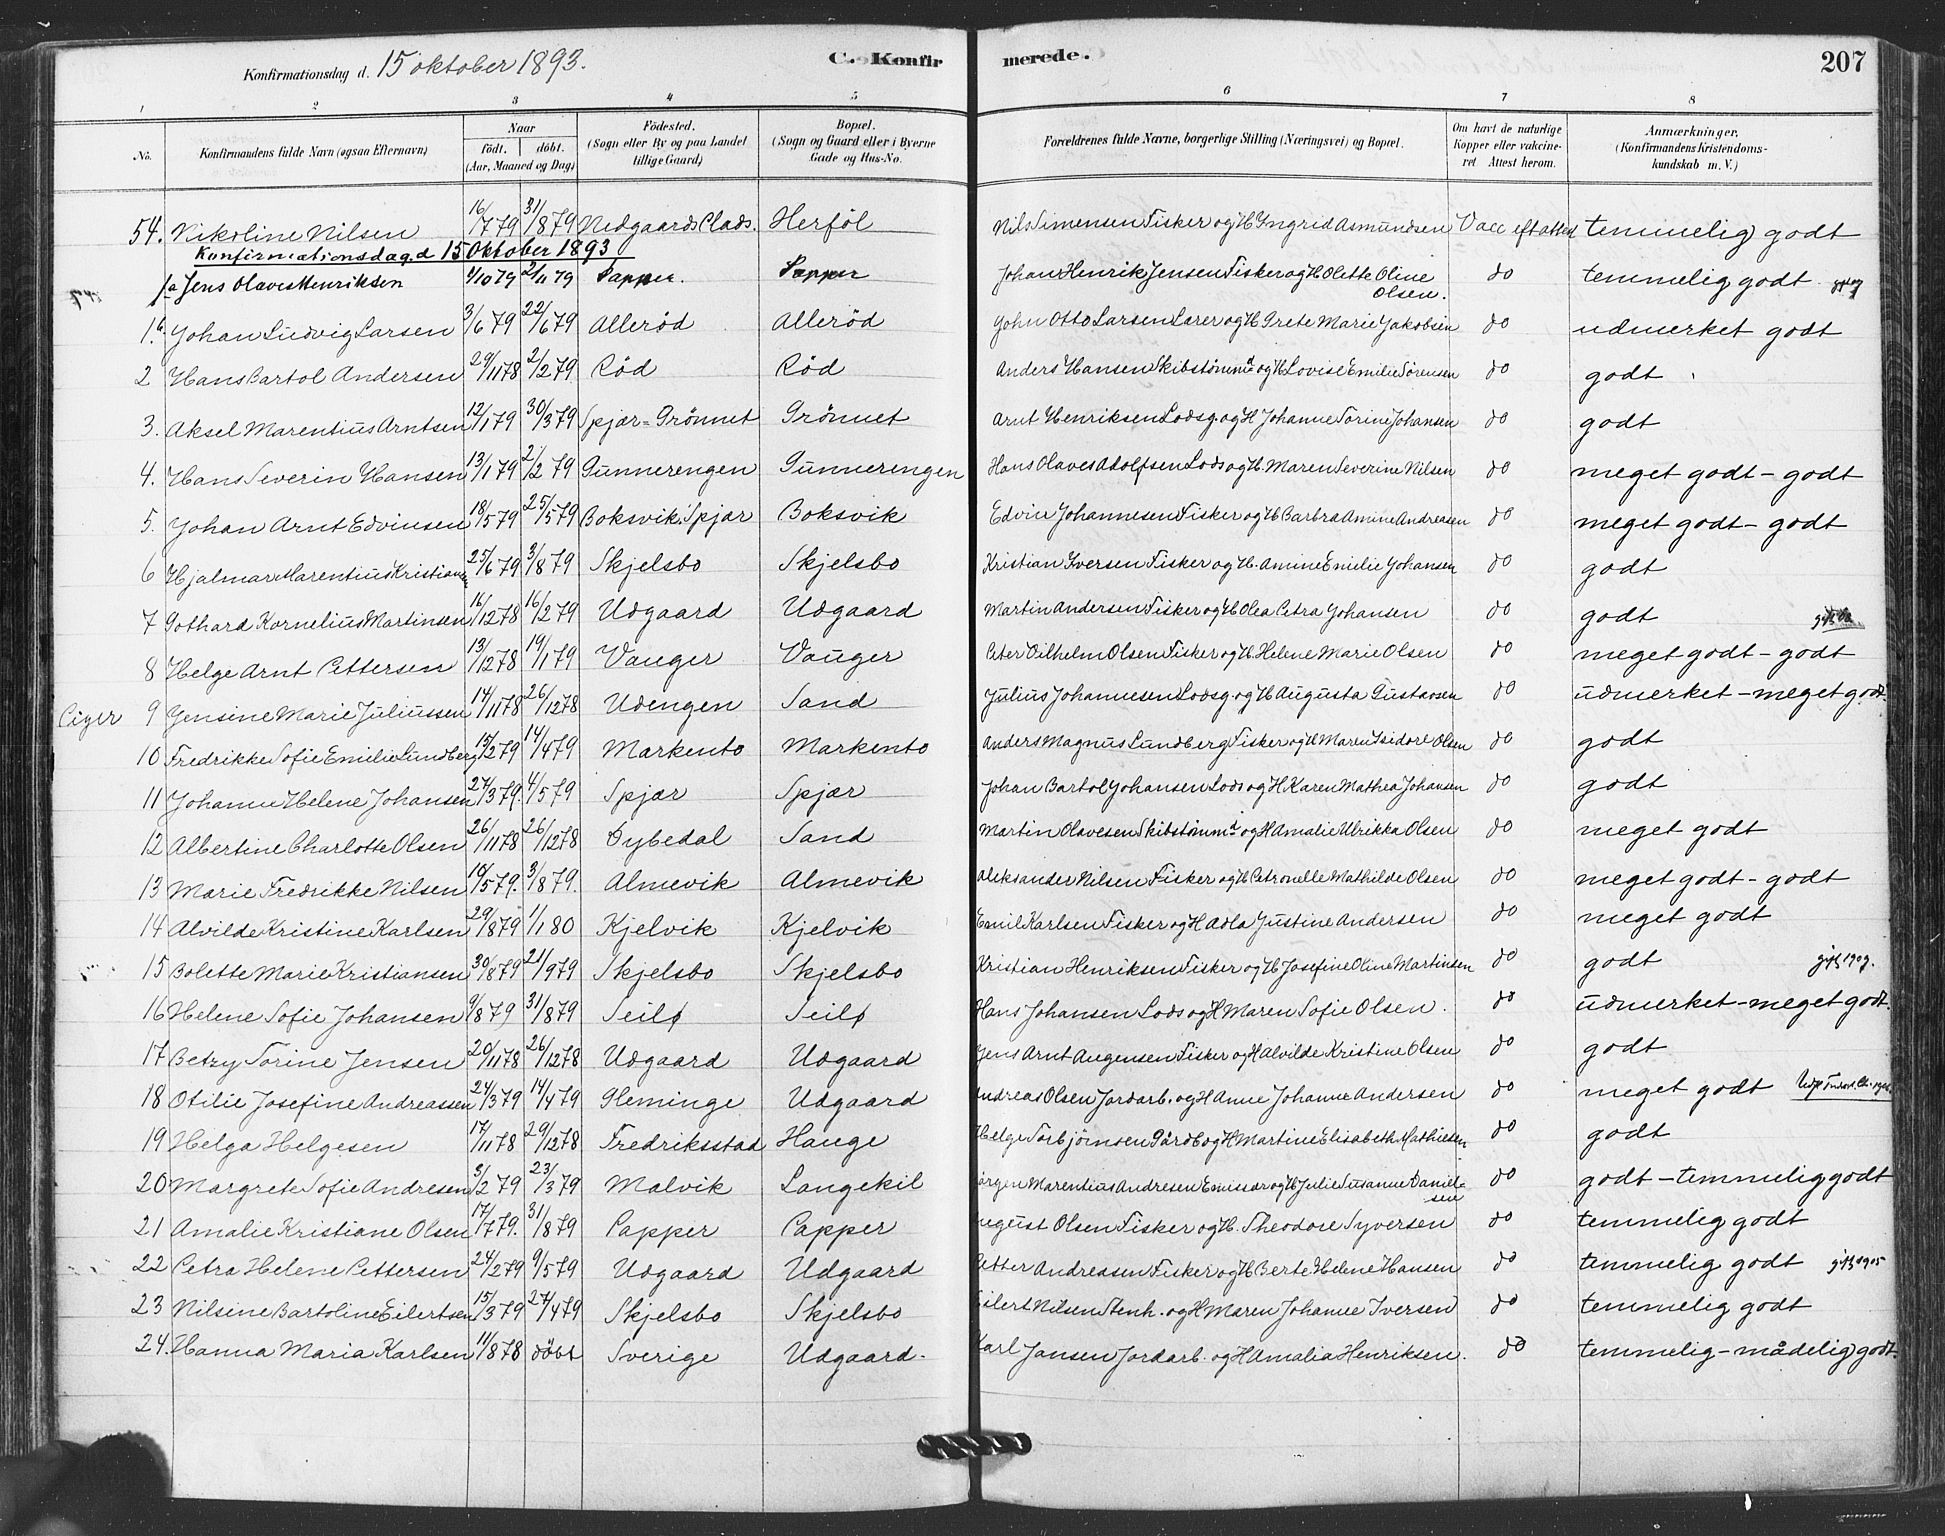 Konfirmationsdag d. 15 oktober 1893. C. Konfirmerede. 207
1 2 3 4 5 6 7 8
No. Konfirmandens fulde Navn (ogsaa Efternavn) Naar født. døbt. (Aar, Maaned og Dag) Fødested. (Sogn eller By og paa Landet tillige Gaard) Bopæl. (Sogn og Gaard eller i Byerne Gade og Hus-No. Forældrenes fulde Navne, borgerlige Stilling (Næringsvei) og Bopæl. Om havt de naturlige Kopper eller vakcineret Attest herom. Anmærkninger. (Konfirmandens Kristendomskundskab m. V.)
54. Nikoline Nilsen 16/779 31/879 Nedgaards Plads. Herföl Nils Simensen Fisker og H Ingrid Asmundsen Vacc eft attest temmelig godt
Konfirmationsdag d 15 Oktober 1893
1a Jens Olaves Henriksen 1/1079 2/1179 Papper. Papper Johan Henrik Jensen Fisker og H Olette Oline Olsen. do temmelig godt
1b. Johan Ludvig Larsen 3/679 22/679 Alleröd Alleröd John Otto Larsen Lærer og H Grete Marie Jakobsen do udmerket godt
2 Hans Bartol Andersen 29/1178 2/279 Röd Röd Anders Hansen Skibstömmd og H Lovise Emilie Sörensen do godt
3. Aksel Marentius Arntsen 12/179 30/379 Spjær=Grönnet Grönnet Arnt Henriksen Lodsg. og H Johanne Torine Johansen do godt
4. Hans Severin Hansen 13/179 2/279 Gunnerengen Gunnerengen Hans Olaves Adolfsen Lods og H. Maren Severine Nilsen do meget godt - godt
5. Johan Arnt Edvinsen 18/579 25/579 Boksvik, Spjær Boksvik Edvin Johannesen Fisker og H Barbra Amine Andreasen do meget godt - godt
6 Hjalmar Marentius Kristiansen 25/679 3/879 Skjelsbo Skjelsbo Kristian Iversen Fisker og H. Amine Emilie Johansen do godt
7 Gothard Kornelius Martinsen 16/1278 16/279 Udgaard Udgaard Martin Andersen Fisker og H Olea Petra Johansen do godt
8 Helge Arnt Pettersen 13/1278 19/179 Vauger Vauger Peter Vilhelm Olsen Fisker og H Helene Marie Olsen do meget godt - godt
9 Jensine Marie Juliussen 14/1178 26/1278 Udengen Sand Julius Johannesen Lodsg. og H Augusta Gustavsen do udmerket - meget godt.
10 Fredrikke Sofie Emilie Lundberg 15/279 14/479 Markento Markento Anders Magnus Lundberg Fisker og H Maren Isidore Olsen do godt
11 Johanne Helene Johansen 27/379. 4/579 Spjær Spjær Johan Bartol Johansen Lods og H Karen Mathea Johansen do godt
12 Albertine Charlotte Olsen 26/1178 26/1278 Dybedal Sand Martin Olavesen Skibstömmd og H Amalie Ulrikka Olsen do meget godt
13 Marie Fredrikke Nilsen 10/579. 3/879. Almevik Almevik Aleksander Nilsen Fisker og H Petronelle Mathilde Olsen do meget godt - godt
14 Alvilde Kristine Karlsen 29/879 1/180 Kjelvik Kjelvik Emil Karlsen Fisker og H Adla Justine Andersen do meget godt
15 Bolette Marie Kristiansen 30/879 21/979 Skjelsbo Skjelsbo Kristian Henriksen Fisker og H Josefine Oline Martinsen do godt gift 1909.
16 Helene Sofie Johansen 9/879 31/879 Seilø Seilø Hans Johansen Lods og H Maren Sofie Olsen. do udmerket - meget godt.
17 Betzy Torine Jensen 20/1178 26/1278 Udgaard Udgaard Jens Arnt Augensen Fisker og H Alvilde Kristine Olsen do godt
18 Otilie Josefine Andreassen 24/379 14/479 Gleminge Udgaard Andreas Olsen Jordarb. og H Anne Johanne Andersen do meget godt
19 Helga Helgesen 17/1178 29/1278 Fredriksstad Hauge Helge Torbjörnsen Gårdb og H Martine Elisabeth Mathiesen do godt
20 Margrete Sofie Andresen 3/279 23/379 Malvik Langekil Jörgen Marentius Andresen Emissær og H Julie Susanne Danielsen do godt - temmelig godt
21 Amalie Kristiane Olsen 17/779. 31/879 Papper Papper August Olsen Fisker og H. Theodore Syversen do temmelig godt
22 Petra Helene Pettersen 24/279 9/579 Udgaard Udgaard Petter Andreasen Fisker og H Berte Helene Hansen do temmelig godt gift 1905
23 Nilsine Bartoline Eilertsen 15/379 27/479 Skjelsbo Skjelsbo Eilert Nilsen Stenh. og H Maren Johanne Iversen do temmelig godt
24. Hanna Maria Karlsen 11/878 döbt Sverige Udgaard. Karl Jansen Jordarb. og H Amalia Henriksen. do temmelig - mådelig godt.